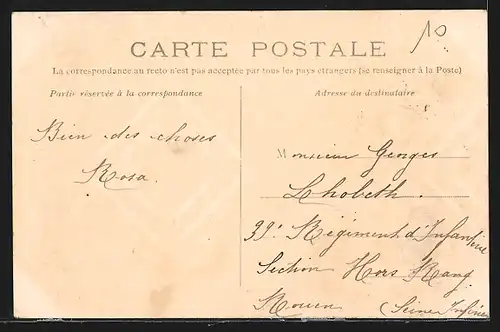 10
CARTE POSTALE
La correspondance au recto n'est pas acceptée par tous les pays étrangers (se renseigner à la Poste)
Partie réservée à la correspondance
Adresse du destinataire
Bien des choses
Rosa.
Monsieur Georges
Lhobeth.
39e Régiment d'Infanterie
Section Hors Rang
Rouen (Seine Infér